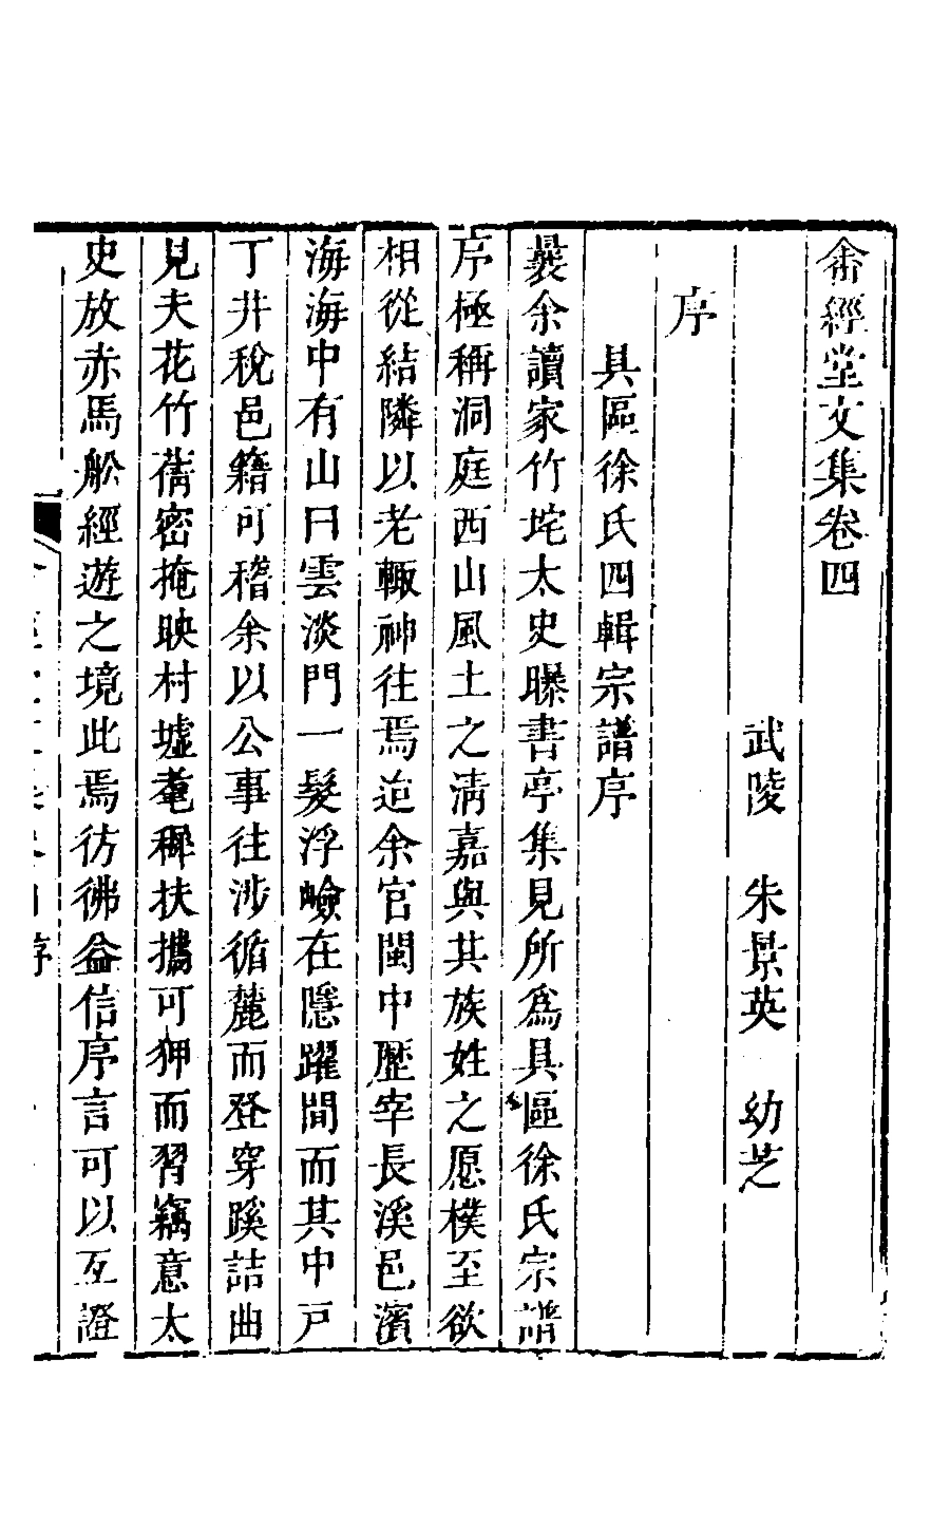 畬經堂文集卷四
武陵 朱景英 幼芝
序
具區徐氏四輯宗譜序
曩余讀家竹垞太史曝書亭集見所爲具區徐氏宗譜
序極稱洞庭西山風土之淸嘉與其族姓之愿樸至欲
相從結隣以老輙神往焉迨余官閩中歷宰長溪邑濱
海海中有山曰雲淡門一髮浮嶮在隱躍間而其中戸
丁井稅邑籍可稽余以公事往涉循麓而登穿蹊詰曲
見夫花竹蒨密掩映村墟耄穉扶攜可狎而習竊意太
史放赤馬船經遊之境此焉彷彿益信序言可以互證